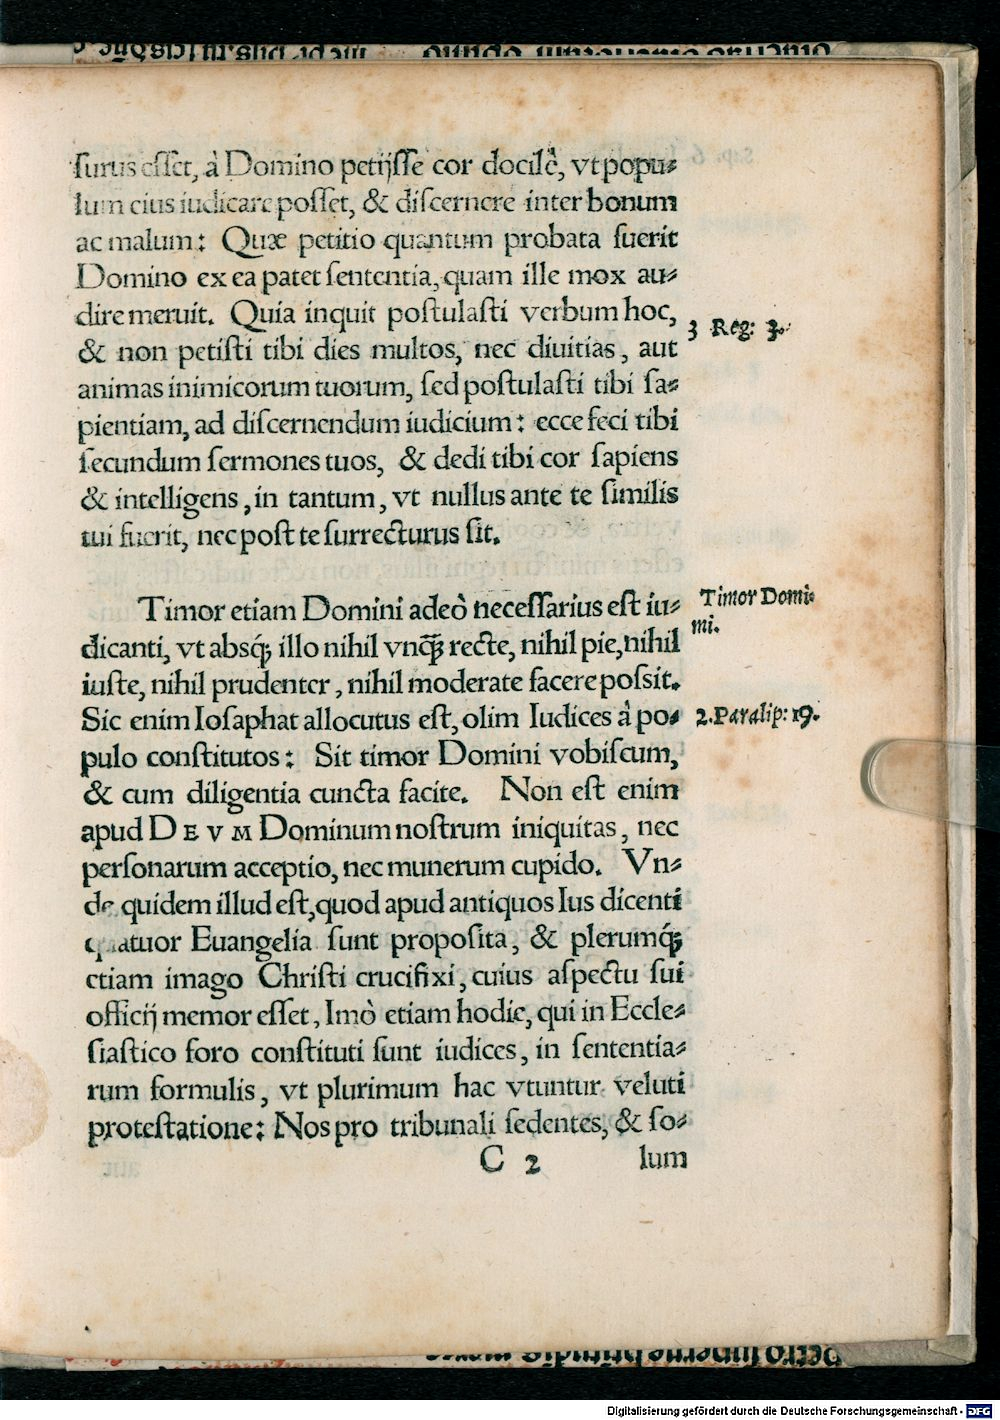 surus esset, à Domino petijsse cor docilẽ, vt popu-
lum eius iudicare posset, & discernere inter bonum
ac malum: Quæ petitio quantum probata fuerit
Domino ex ea patet sententia, quam ille mox au-
dire meruit. Quia inquit postulasti verbum hoc,
3 Reg: 3.
& non petisti tibi dies multos, nec diuitias, aut
animas inimicorum tuorum, sed postulasti tibi sa-
pientiam, ad discernendum iudicium: ecce feci tibi
secundum sermones tuos, & dedi tibi cor sapiens
& intelligens, in tantum, vt nullus ante te similis
tui fuerit, nec post te surrecturus sit.
Timor etiam Domini adeò necessarius est iu-
Timor Domi-
mi.
dicanti, vt absq́; illo nihil vnq̃; recte, nihil pie, nihil
iuste, nihil prudenter, nihil moderate facere possit.
Sic enim Iosaphat allocutus est, olim Iudices à po-
2. Paralip: 19.
pulo constitutos: Sit timor Domini vobiscum,
& cum diligentia cuncta facite. Non est enim
apud DEVM Dominum nostrum iniquitas, nec
personarum acceptio, nec munerum cupido. Vn-
de quidem illud est, quod apud antiquos Ius dicenti
quatuor Euangelia sunt proposita, & plerumq́;
etiam imago Christi crucifixi, cuius aspectu sui
officij memor esset, Imò etiam hodie, qui in Eccle-
siastico foro constituti sunt iudices, in sententia-
rum formulis, vt plurimum hac vtuntur veluti
protestatione: Nos pro tribunali sedentes, & so-
C 2
lum
Digitalisierung gefördert durch die Deutsche Forschungsgemeinschaft - DFG